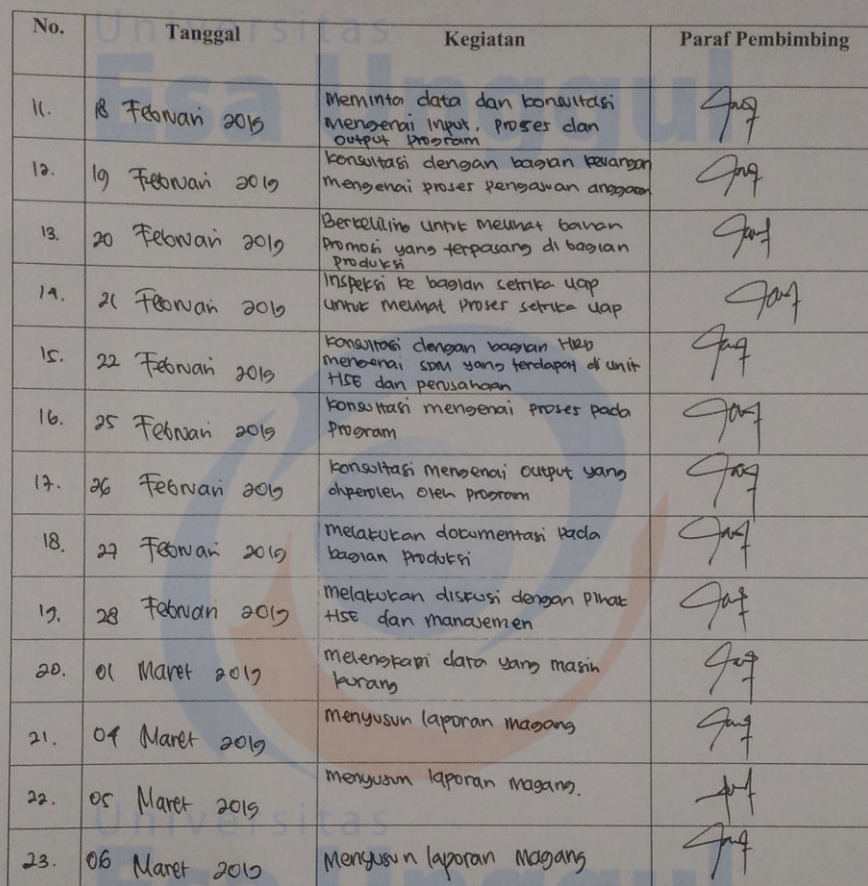 Universitas
Esa Unggul
No. Tanggal Kegiatan Paraf Pembimbing
11. 18 Februari 2019 Meminta data dan konsultasi
mengenai Input, proses dan
output program
12. 19 Februari 2019 konsultasi dengan bagian keuangan
mengenai proses pengajuan anggaran
13. 20 Februari 2019 Berkeliling untuk melihat bahan
Promosi yang terpasang di bagian
produksi
14. 21 Februari 2019 Inspeksi ke bagian setrika uap
untuk melihat proses setrika uap
15. 22 Februari 2019 konsultasi dengan bagian HRD
mengenai SDM yang terdapat di unit
HSE dan perusahaan
16. 25 Februari 2019 konsultasi mengenai proses pada
Program
17. 26 Februari 2019 konsultasi mengenai output yang
diperoleh oleh program
18. 27 Februari 2019 melakukan dokumentasi pada
bagian Produksi
19. 28 Februari 2019 melakukan diskusi dengan pihak
HSE dan manajemen
20. 01 Maret 2019 melengkapi data yang masih
kurang
21. 04 Maret 2019 menyusun laporan magang
22. 05 Maret 2019 menyusun laporan magang.
23. 06 Maret 2019 Menyusun laporan Magang
Universitas
Esa Unggul